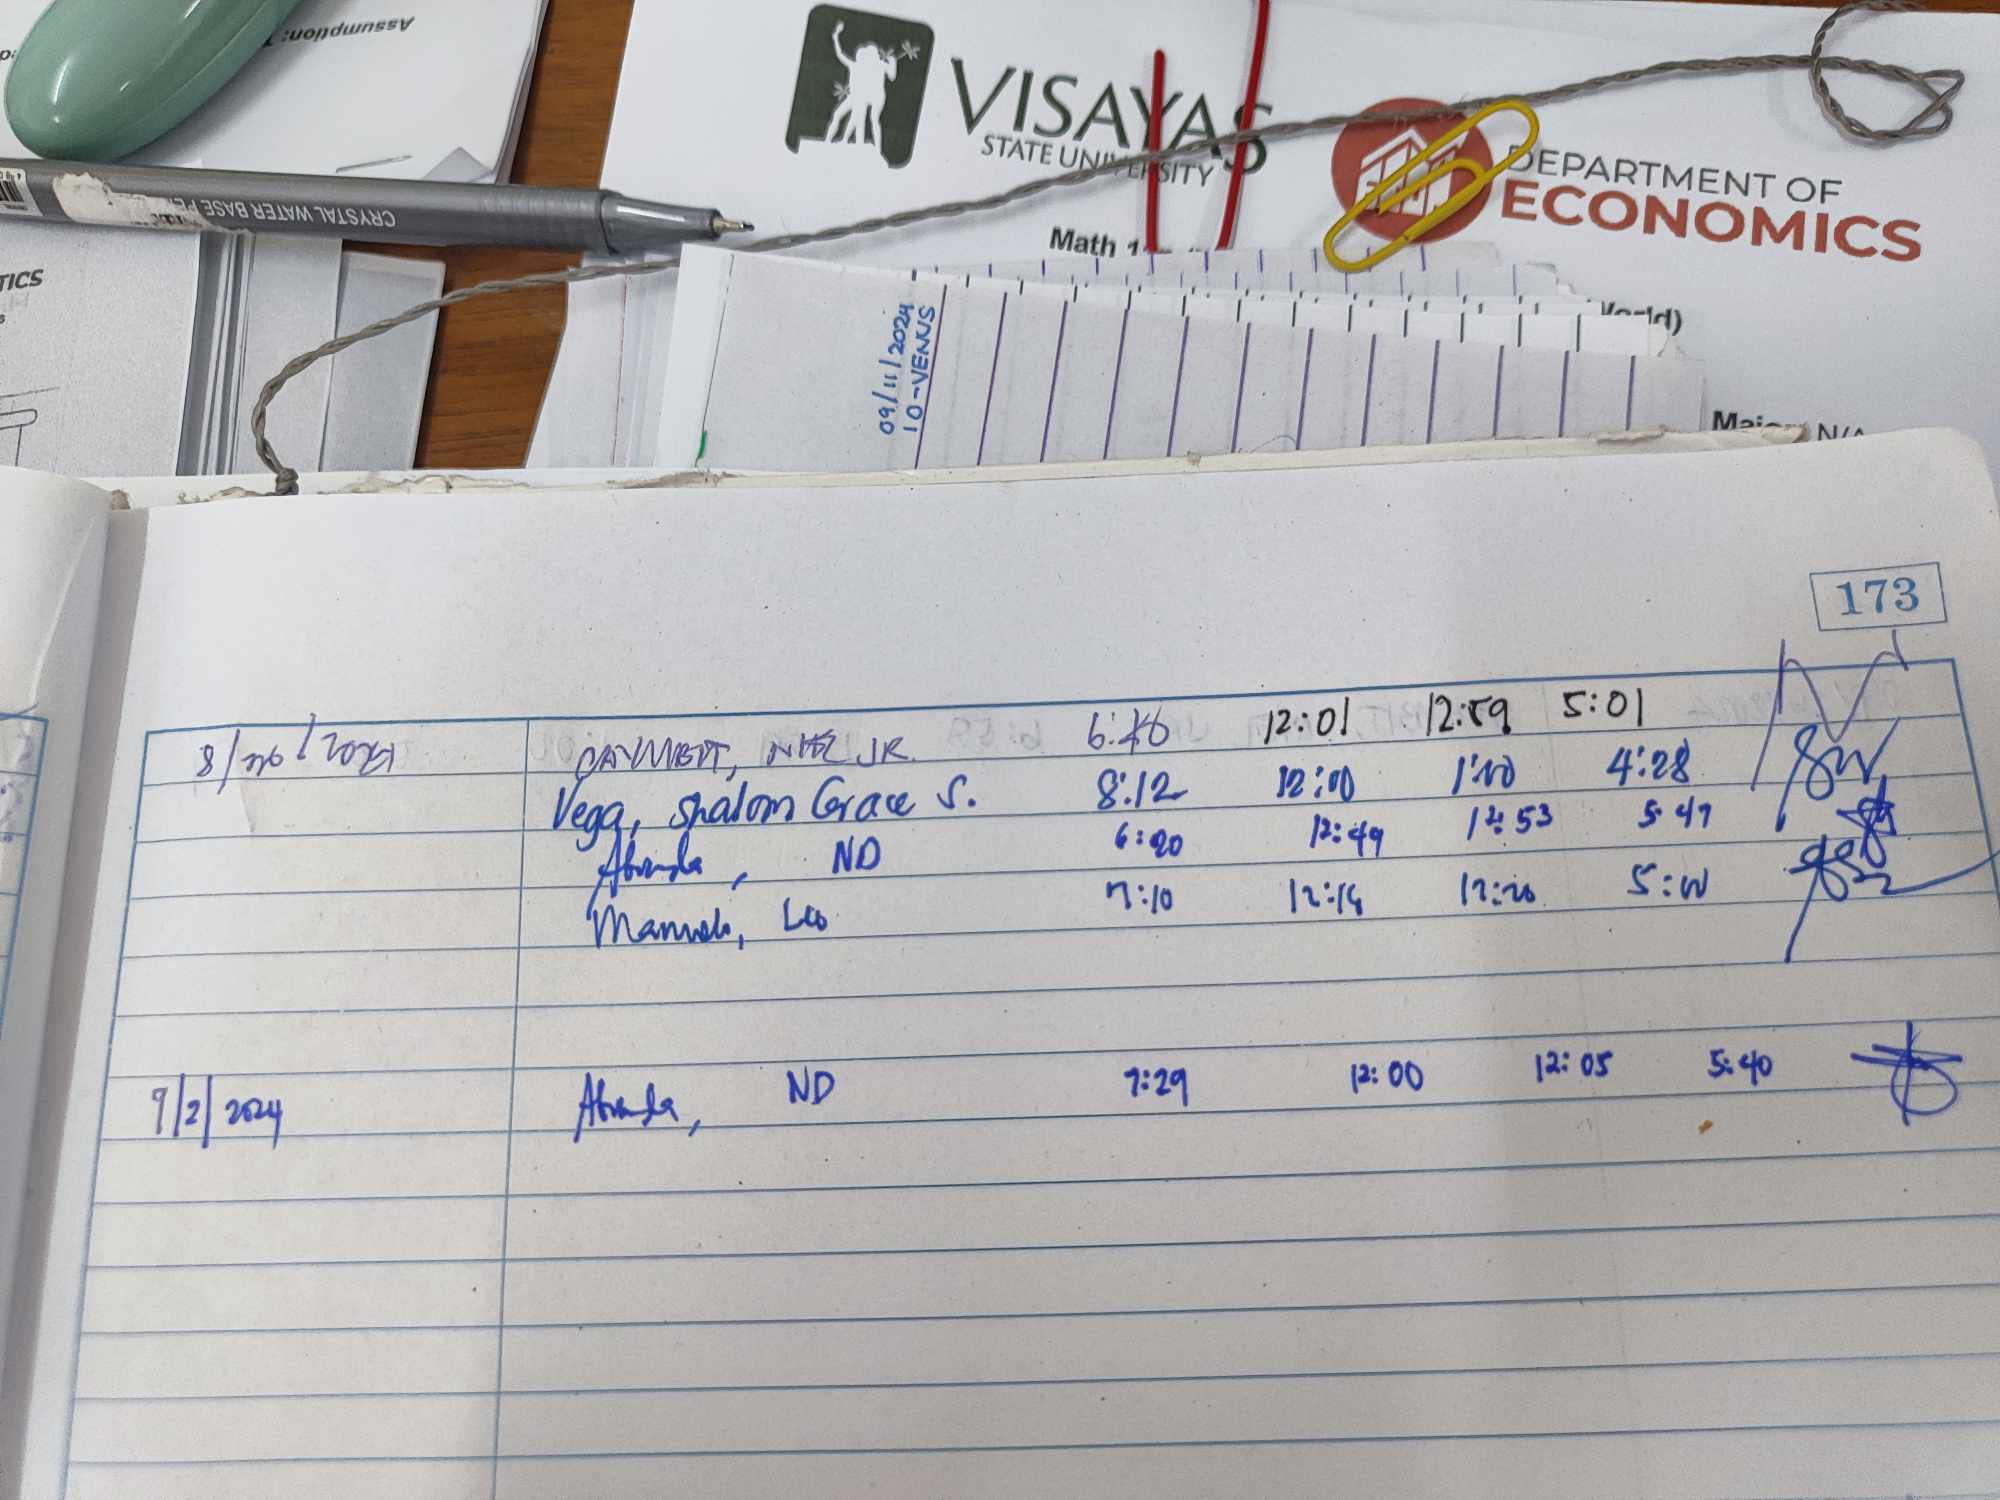 Assumption:
VISAYAS
STATE UNIVERSITY
DEPARTMENT OF
ECONOMICS
CRYSTAL WATER BASE PE
TICS
Math 1
09/11/2024
10-VENUS
World)
Major: N/A
173
8/ /2024 JR. 12:01 12:59 5:01
Vega, Shalom Grace S. 8:12 12:00 1:00 4:28
ND 6:20 12:49 12:53 5:47
Leo 7:10 12:14 12:20
9/2/2024 ND 7:29 12:00 12:05 5:40